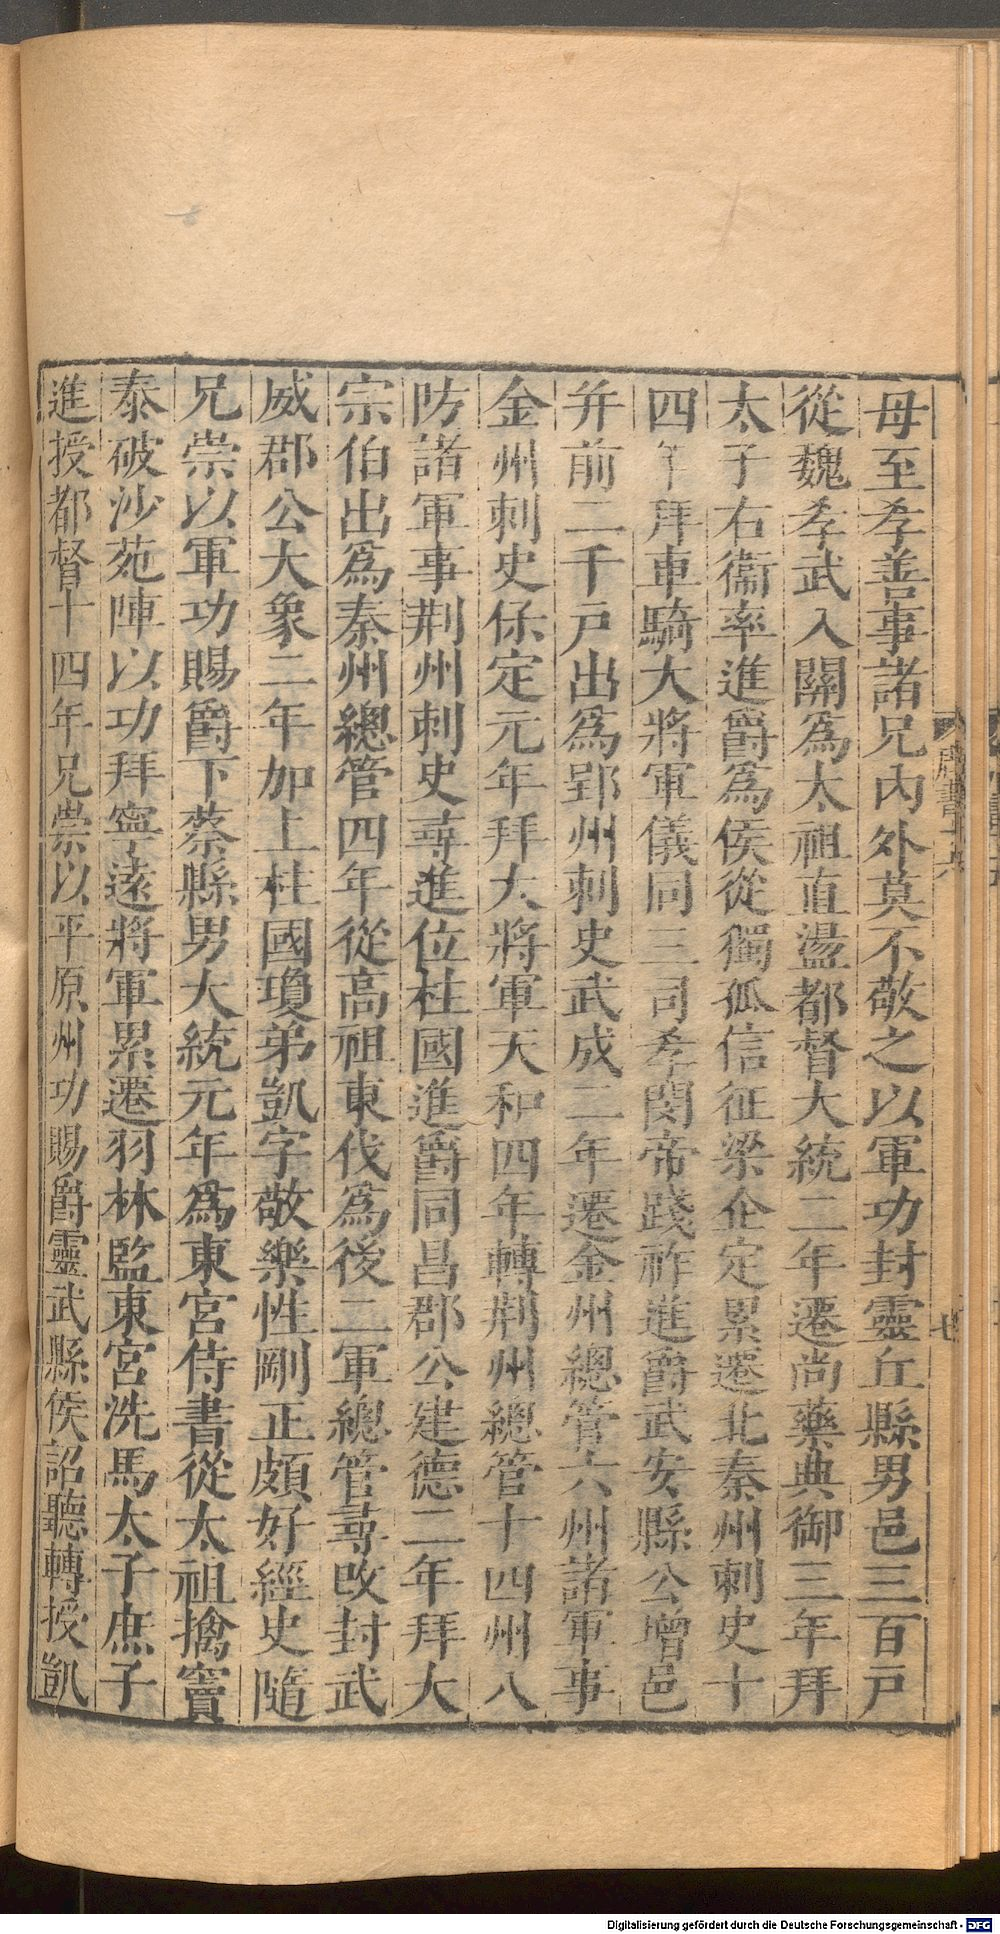 母至孝善事諸兄內外莫不敬之以軍功封靈丘縣男邑三百戶
從魏孝武入關爲太祖直盪都督大統二年遷尚藥典御三年拜
太子右衞率進爵爲侯從獨孤信征梁仚定累遷北秦州刺史十
四年拜車騎大將軍儀同三司孝閔帝踐祚進爵武安縣公增邑
并前二千戶出爲郢州刺史武成二年遷金州總管六州諸軍事
金州刺史保定元年拜大將軍天和四年轉荆州總管十四州八
防諸軍事荆州刺史尋進位柱國進爵同昌郡公建德二年拜大
宗伯出爲秦州總管四年從高祖東伐爲後二軍總管尋改封武
威郡公大象二年加上柱國瓊弟凱字敬樂性剛正頗好經史隨
兄崇以軍功賜爵下蔡縣男大統元年爲東宮侍書從太祖擒竇
泰破沙苑陣以功拜寧遠將軍累遷羽林監東宮洗馬太子庶子
進授都督十四年兄崇以平原州功賜爵靈武縣侯詔聽轉授凱
周書十六
七
Digitalisierung gefördert durch die Deutsche Forschungsgemeinschaft - DFG